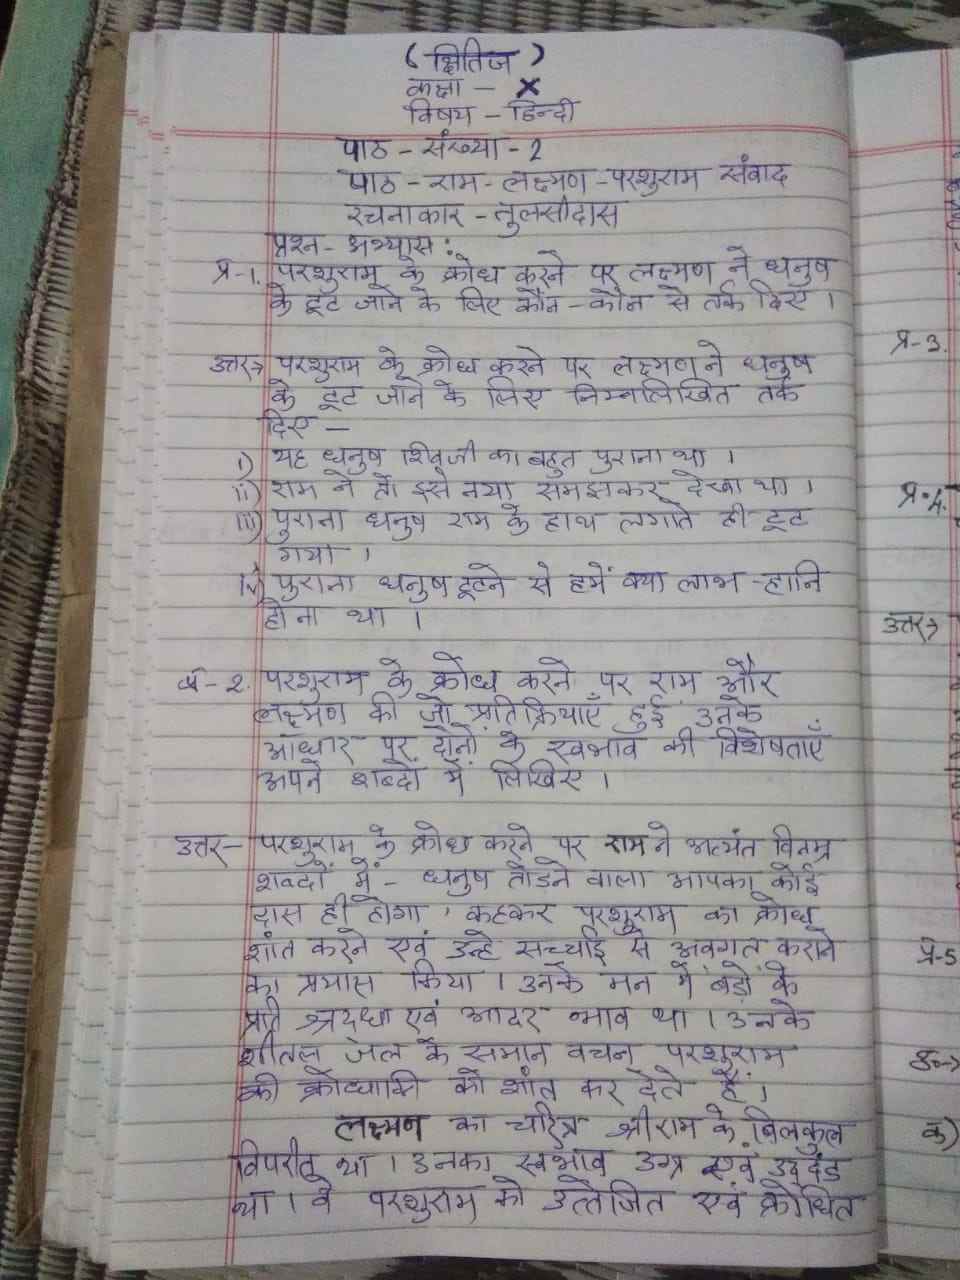 (क्षितिज)
कक्षा - X
विषय - हिन्दी
पाठ - संख्या - 2
पाठ - राम - लक्ष्मण - परशुराम संवाद
रचनाकार - तुलसीदास
प्रश्न - अभ्यास :
प्र-1. परशुराम के क्रोध करने पर लक्ष्मण ने धनुष
के टूट जाने के लिए कौन - कौन से तर्क दिए ।
उत्तर→ परशुराम के क्रोध करने पर लक्ष्मण ने धनुष
के टूट जाने के लिए निम्नलिखित तर्क
दिए —
i) यह धनुष शिवजी का बहुत पुराना था ।
ii) राम ने तो इसे नया समझकर देखा था ।
iii) पुराना धनुष राम के हाथ लगाते ही टूट
गया ।
iv) पुराना धनुष टूटने से हमें क्या लाभ - हानि
होना था ।
प्र-2. परशुराम के क्रोध करने पर राम और
लक्ष्मण की जो प्रतिक्रियाएँ हुई उनके
आधार पर दोनों के स्वभाव की विशेषताएँ
अपने शब्दों में लिखिए ।
उत्तर- परशुराम के क्रोध करने पर राम ने अत्यंत विनम्र
शब्दों में - धनुष तोडने वाला आपका कोई
दास ही होगा, कहकर परशुराम का क्रोध
शांत करने एवं उन्हे सच्चाई से अवगत कराने
का प्रयास किया । उनके मन में बड़ों के
प्रति श्रद्धा एवं आदर भाव था । उनके
शीतल जल के समान वचन परशुराम
की क्रोधाग्नि को शांत कर देते हैं ।
लक्ष्मण का चरित्र श्रीराम के बिलकुल
विपरीत था । उनका स्वभाव उग्र एवं उद्दंड
था । वे परशुराम को उत्तेजित एवं क्रोधित
प्र-3.
प्र-4.
उत्तर→
प्र-5
उ०→
क)